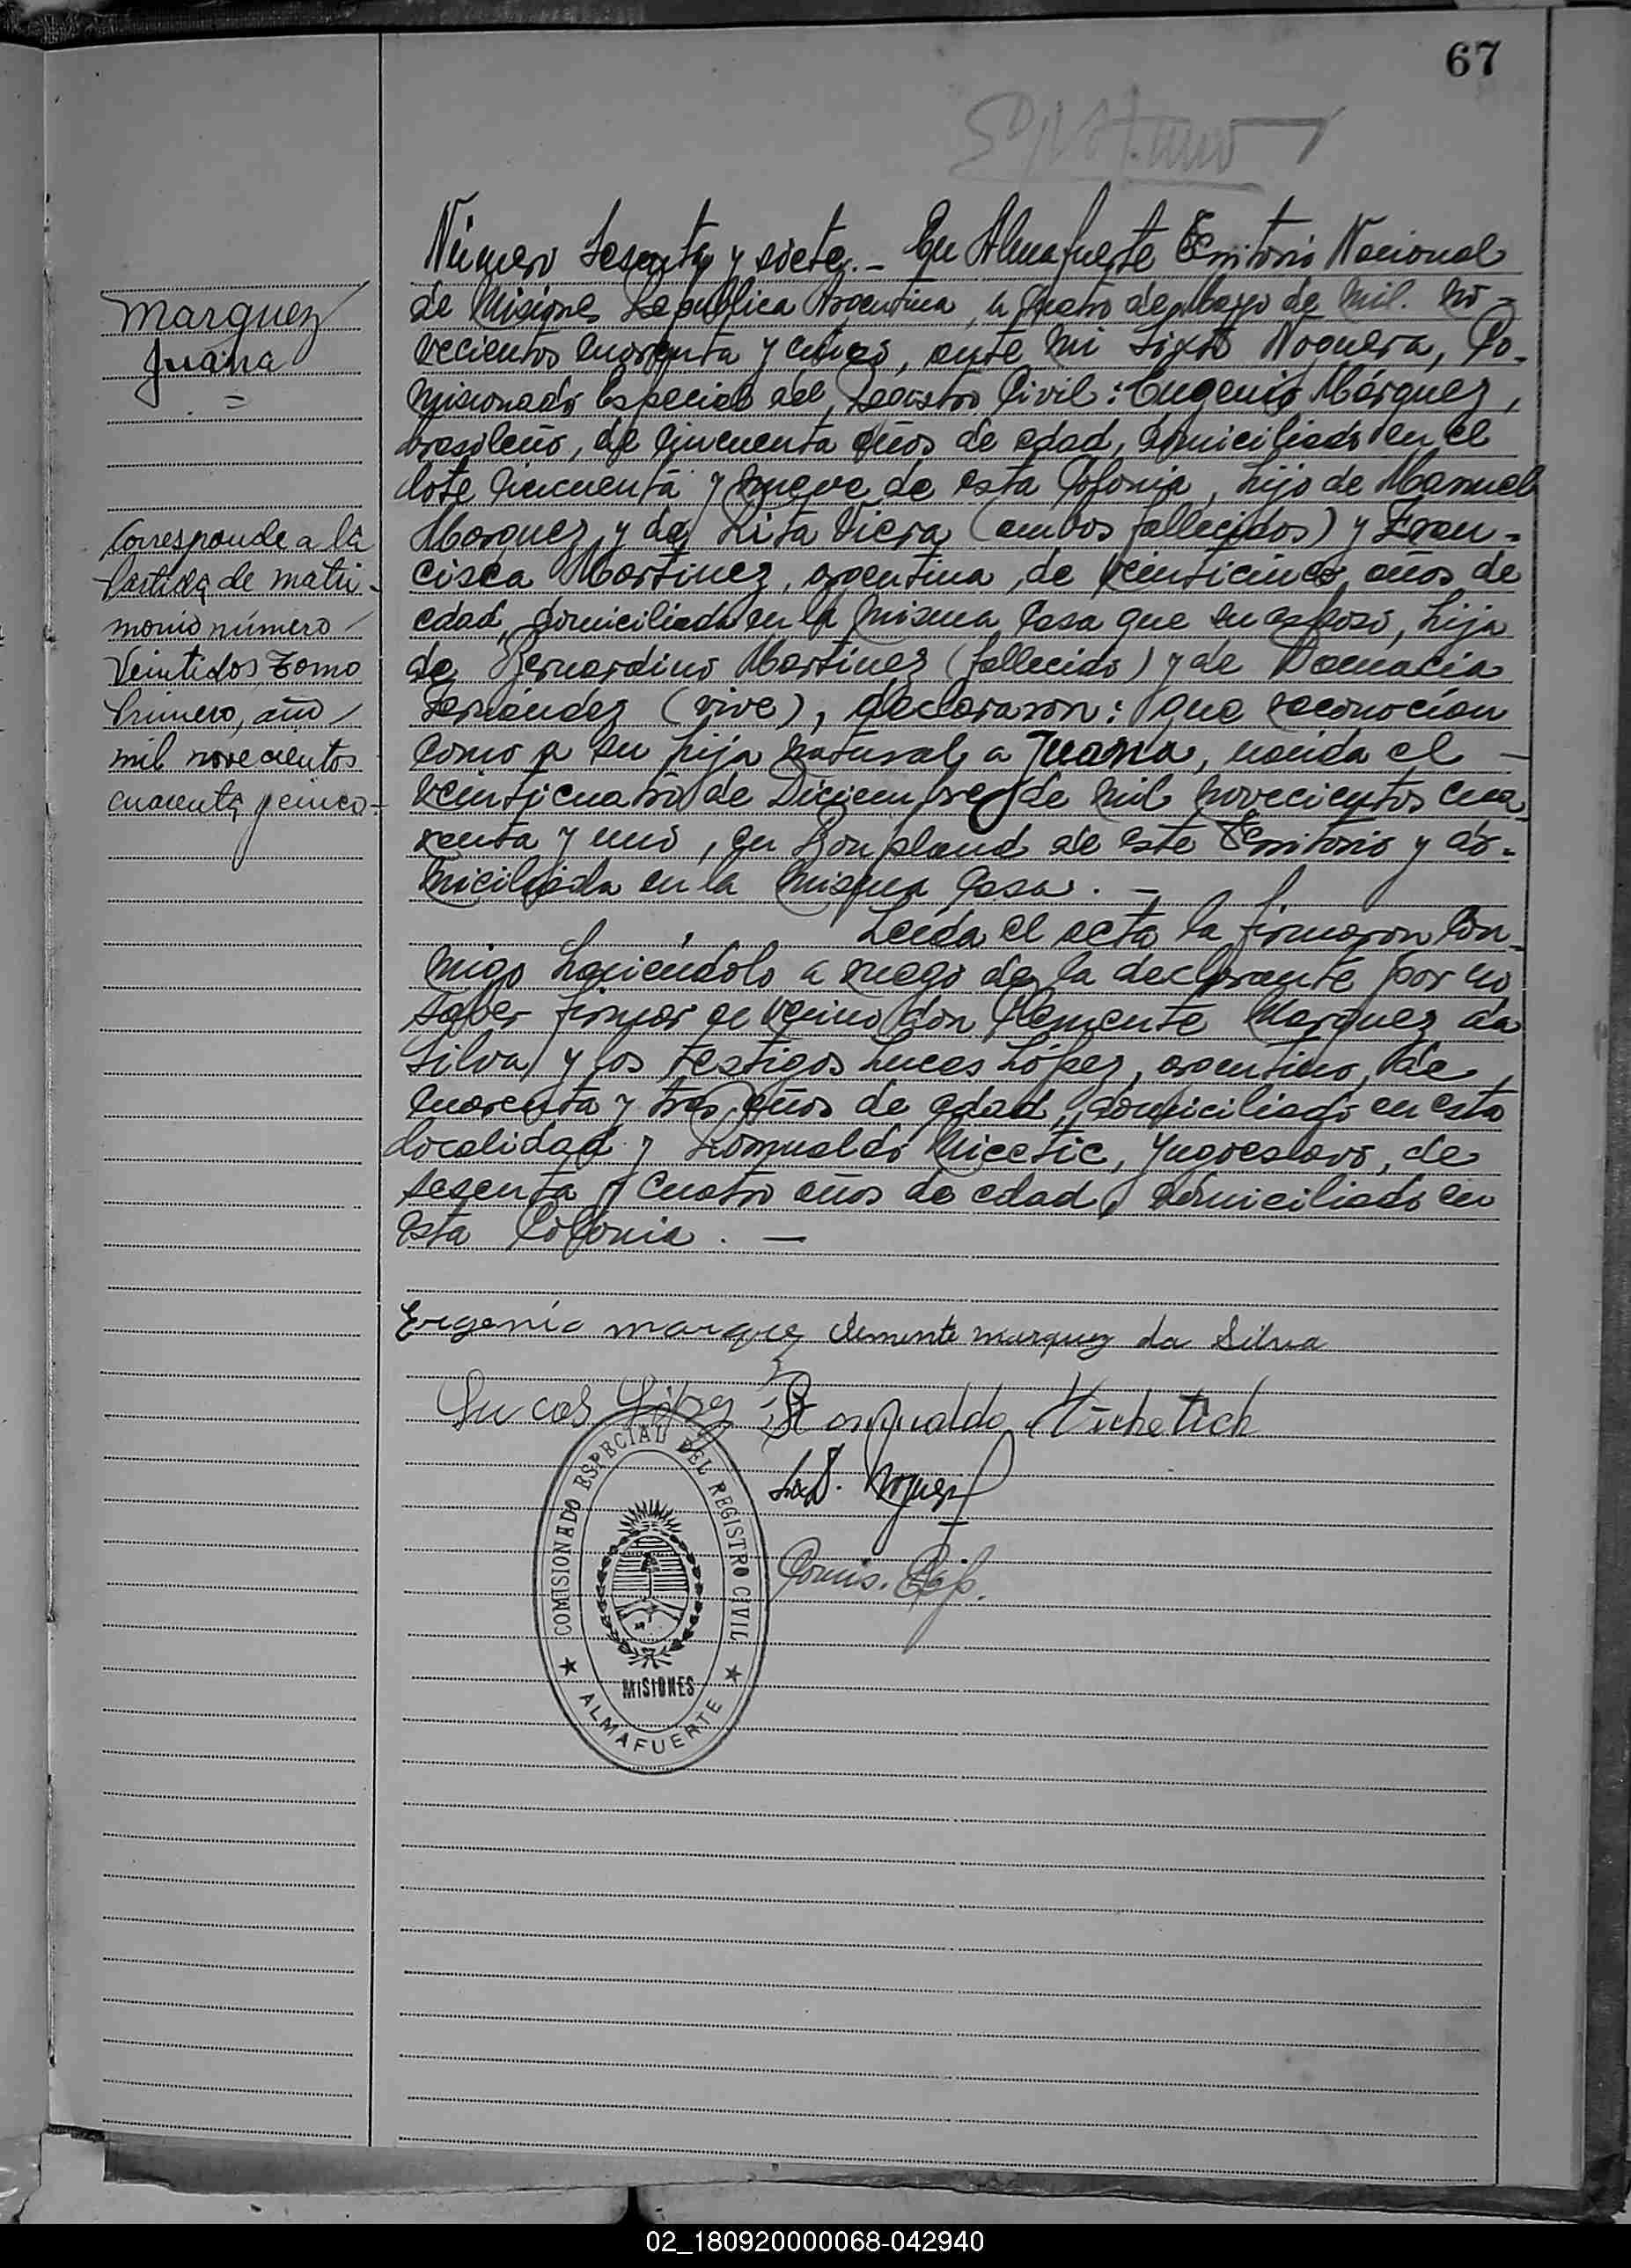 67
Marquez
Juana
Corresponde a la
Partida de matri-
monio número
Veintidos Tomo
Primero, año
mil novecientos
cuarenta y cinco-
Número Sesenta y siete.- En Almafuerte Territorio Nacional
de Misiones Republica Argentina, a cuatro de Mayo de mil no-
vecientos cuarenta y cinco, ante mi Sixto Noguera, Co-
misionado Especial del Registro Civil: Eugenio Márquez,
brasileño, de cincuenta años de edad, domiciliado en el
lote cincuenta y nueve de esta Colonia, hijo de Manuel
Marquez y de Rita Viera (ambos fallecidos) y Fran-
cisca Martinez, argentina, de veinticinco años de
edad, domiciliada en la misma casa que su esposo, hija
de Bernardino Martinez (fallecido) y de Damacia
Fernández (vive), declararon: que reconocían
como a su hija natural a Juana, nacida el -
veinticuatro de Diciembre de mil novecientos cua-
renta y uno, en Bonpland de este Territorio y do-
miciliada en la misma casa. -
Leída el acta la firmaron con-
migo haciéndolo a ruego de la declarante por no
saber firmar el vecino don Clemente Marquez da
Silva y los testigos Lucas López, argentino, de
cuarenta y tres años de edad, domiciliado en esta
localidad y Romualdo Micetic, yugoeslavo, de
sesenta y cuatro años de edad, domiciliado en
esta Colonia. -
Eugenio marquez Clemente marquez da Silva
Lucas López Romualdo Michetich
Noguera
Comis. Esp.
COMISIONADO ESPECIAL DEL REGISTRO CIVIL
MISIONES
ALMAFUERTE
02_180920000068-042940